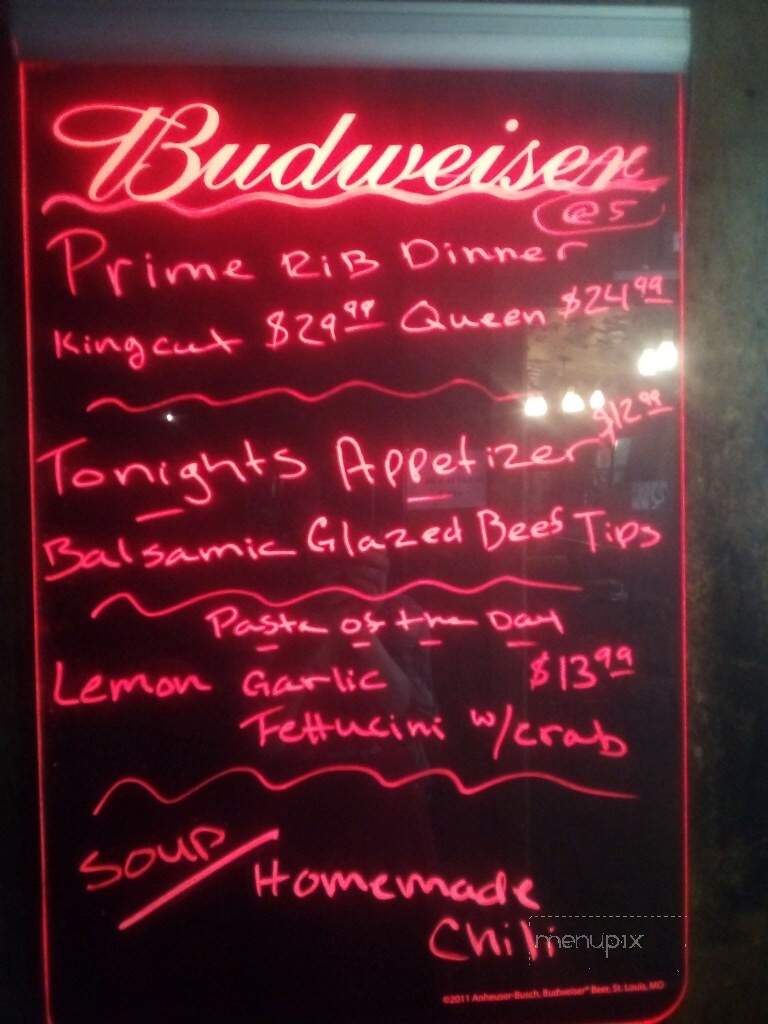 Budweiser
@5
Prime RiB Dinner
King cut $29.99 Queen $24.99
$12.99
Tonights Appetizer
Balsamic Glazed Beef Tips
Pasta of the Day
Lemon Garlic $13.99
Fettucini w/crab
Soup/
Homemade
Chili
menupix
©2011 Anheuser-Busch, Budweiser® Beer, St. Louis, MO